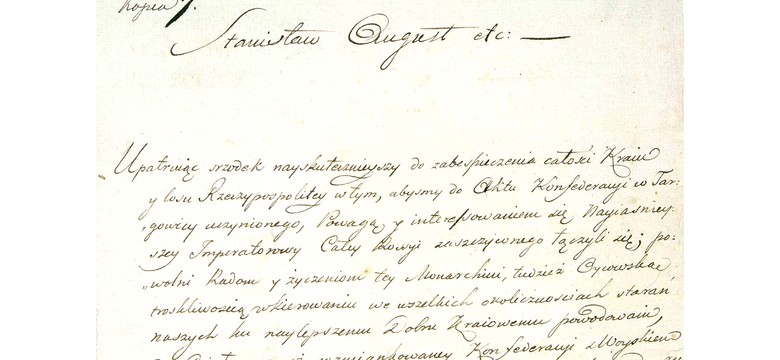 Kopia
Stanisław August etc: —
Upatruiąc srzodek nayskutecznieyszy do zabespieczenia całości Kraiu
y losu Rzeczypospolitey w tym, abyśmy do Aktu Konfederacyi w Tar:
„gowicy uczynionego, Powagą y interessowaniem się Nayiaśniey:
„szey Imperatorowy Całey Rossyi zaszczyconego łączyli się; po:
„wolni Radom y życzeniom tey Monarchini, tudzież Oycowską
troskliwością w kierowaniu we wszelkich okolicznościach starań
naszych ku naylepszemu Dobru Kraiowemu powodowani,
wzmiankowaney Konfederacyi z Woyskiem